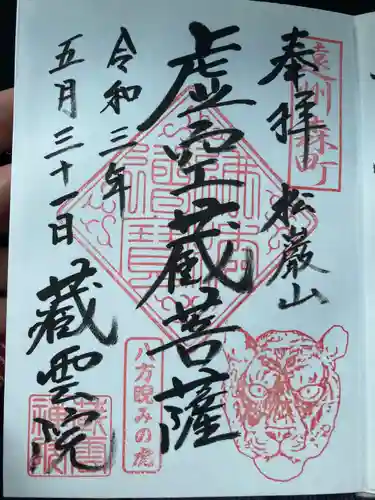 奉拝
遠州森町
松巖山
虚空蔵菩薩
八方睨みの虎
令和三年
五月三十一日
蔵雲院